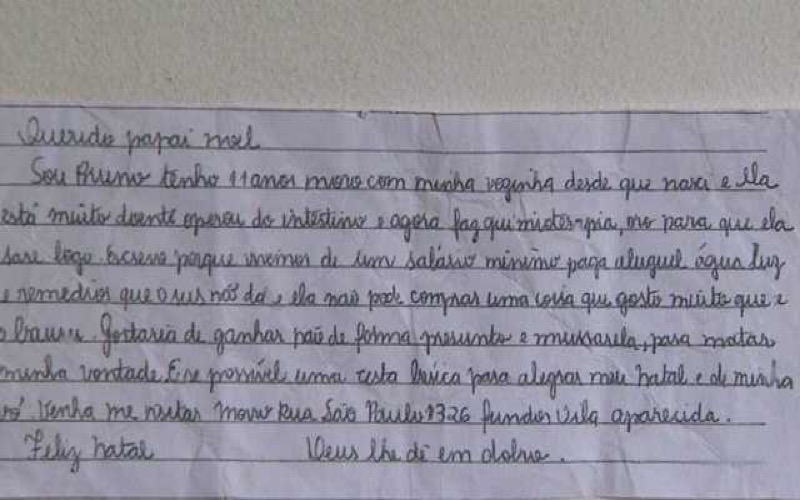 Querido papai noel
Sou Bruno tenho 11 anos moro com minha voginha desde que nasci e ela
está muito doente operou do intestino e agora faz quimioterapia, oro para que ela
sare logo. Escrevo porque vivemos de um salário mínimo paga aluguel água luz
e remedios que o sus não dá e ela não pode comprar uma coisa que gosto muito que e
o bauru. Gostaria de ganhar paõ de forma presunto e mussarela, para matar
minha vontade. E se possível uma cesta básica para alegrar meu natal e de minha
vó. Venha me visitar Moro Rua São Paulo 1326 fundos Vila aparecida.
Feliz natal Deus lhe dê em dobro.